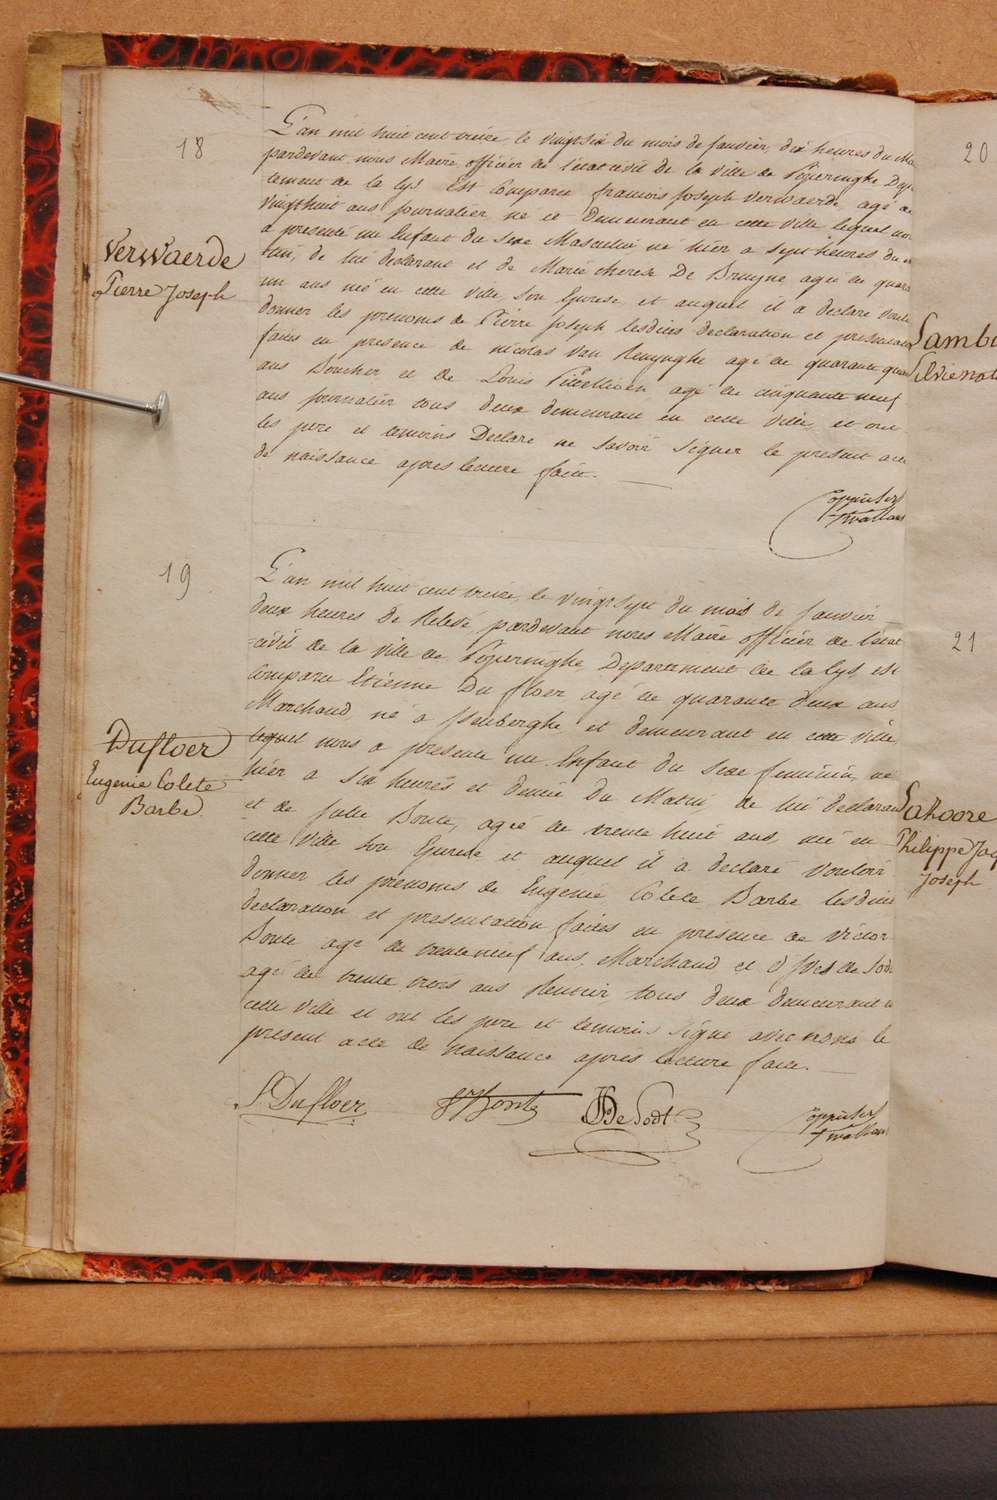 18
Verwaerde
Pierre Joseph
L'an mil huit cent treize, le vingtsix du mois de janvier dix heures du Ma
pardevant nous Maire officier de l'état civil de la ville de Poperinghe Depar
tement de la Lys Est Comparu francois Joseph Verwaerde agé de
vingthuit ans journalier né et demeurant en cette ville lequel nous
a presenté un Enfant du sexe Masculin né hier a sept heures du
tin, de lui declarant et de Marie therese De Bruyne agée de quara
un ans née en cette ville, son Epouse et auquel il a declaré vouloir
donner les prenoms de Pierre Joseph lesdites declaration et presentation
faites en presence de nicolas Van Renynghe agé de quarante quatre
ans Boucher et de Louis agé de cinquante neuf
ans journalier tous deux demeurant en cette ville, et ont
les pere et temoins Declaré ne savoir signer le present acte
de naissance apres lecture faite.
19
Dufloer
Eugenie Colete
Barbe
L'an mil huit cent treize, le vingt sept du mois de janvier
deux heures de Relevé, pardevant nous Maire officier de l'état
civil de la ville de Poperinghe Departement de la Lys, est
Comparu Etienne Dufloer agé de quarante deux ans
Marchand, né a et demeurant en cette ville
lequel nous a presenté un Enfant du sexe feminin né
hier a six heures et demie du Matin, de lui declarant
et de Julie Bonte, agée de trente huit ans, née en
cette ville son Epouse et auquel il a declaré vouloir
donner les prenoms de Eugenie Colete Barbe lesdites
declaration et presentation faites en presence de Victor
Bonte agé de trente neuf ans, Marchand et d'Yves de Sodt
agé de trente trois ans Rentier tous deux demeurant en
cette ville et ont les pere et temoins signé avec nous le
present acte de naissance après lecture faite.
Dufloer
Bonte
De Sodt
20
21
Lahoore
Philippe Jac
Joseph